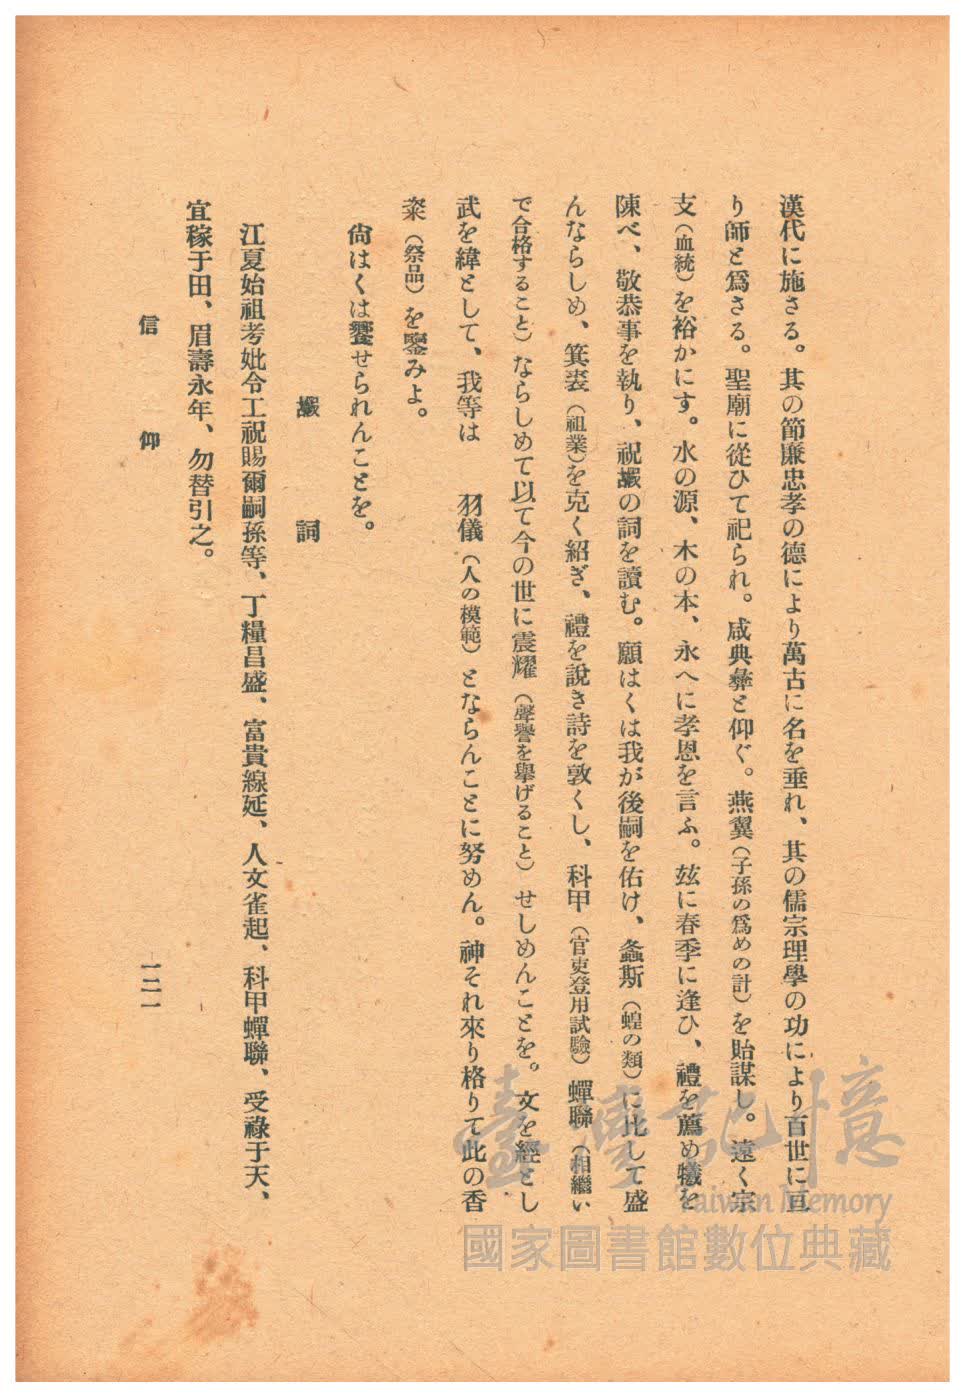 漢代に施さる。其の節廉忠孝の德により萬古に名を垂れ、其の儒宗理學の功により百世に亘
り師と爲さる。聖廟に從ひて祀られ。咸典彝と仰ぐ。燕翼（子孫の爲めの計）を貽謀し。遠く宗
支（血統）を裕かにす。水の源、木の本、永へに孝恩を言ふ。玆に春季に逢ひ、禮を薦め犧を
陳べ、敬恭事を執り、祝嘏の詞を讀む。願はくは我が後嗣を佑け、螽斯（蝗の類）に比して盛
んならしめ、箕裘（祖業）を克く紹ぎ、禮を說き詩を敦くし、科甲（官吏登用試驗）蟬聯（相繼い
で合格すること）ならしめて以て今の世に震耀（聲譽を擧げること）せしめんことを。文を經とし
武を緯として、我等は　羽儀（人の模範）とならんことに努めん。神それ來り格りて此の香
粢（祭品）を鑒みよ。
尙はくは饗せられんことを。
嘏　詞
江夏始祖考妣令工祝賜爾嗣孫等、丁糧昌盛、富貴線延、人文雀起、科甲蟬聯、受祿于天、
宜稼于田、眉壽永年、勿替引之。
信　仰
一二一
臺灣記憶
Taiwan Memory
國家圖書館數位典藏